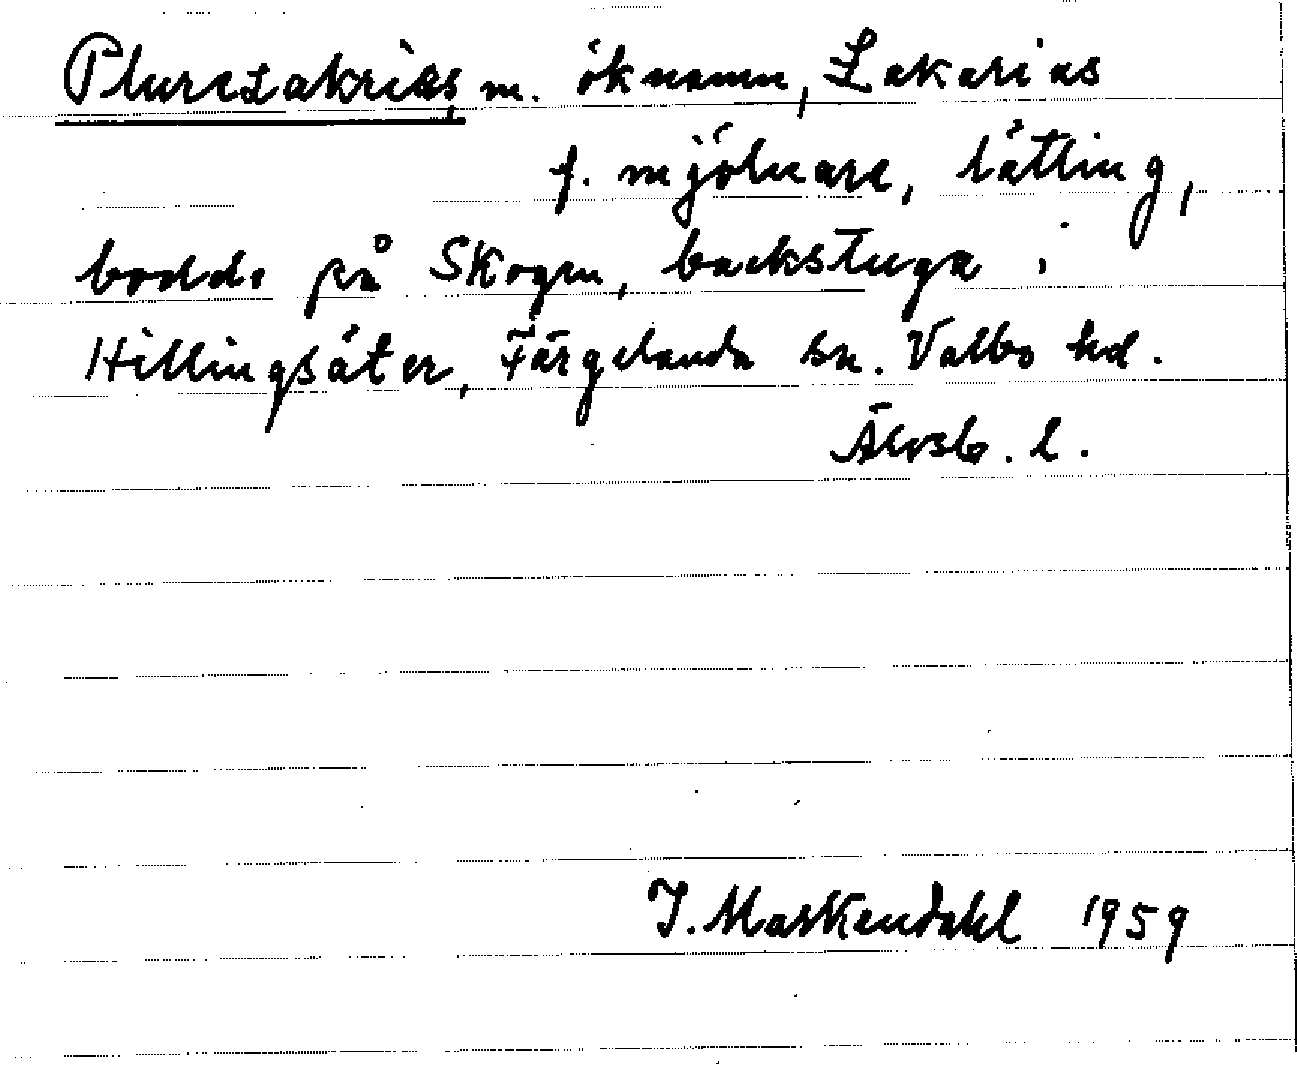 Plurezakrias, m. öknamn, Zakarias
f. mjölnare, lätling,
bodde på Skogen, backstuga i
Hillingsäter, Färgelanda sn. Valbo hd.
Älvsb. l.
J. Maskendahl 1959